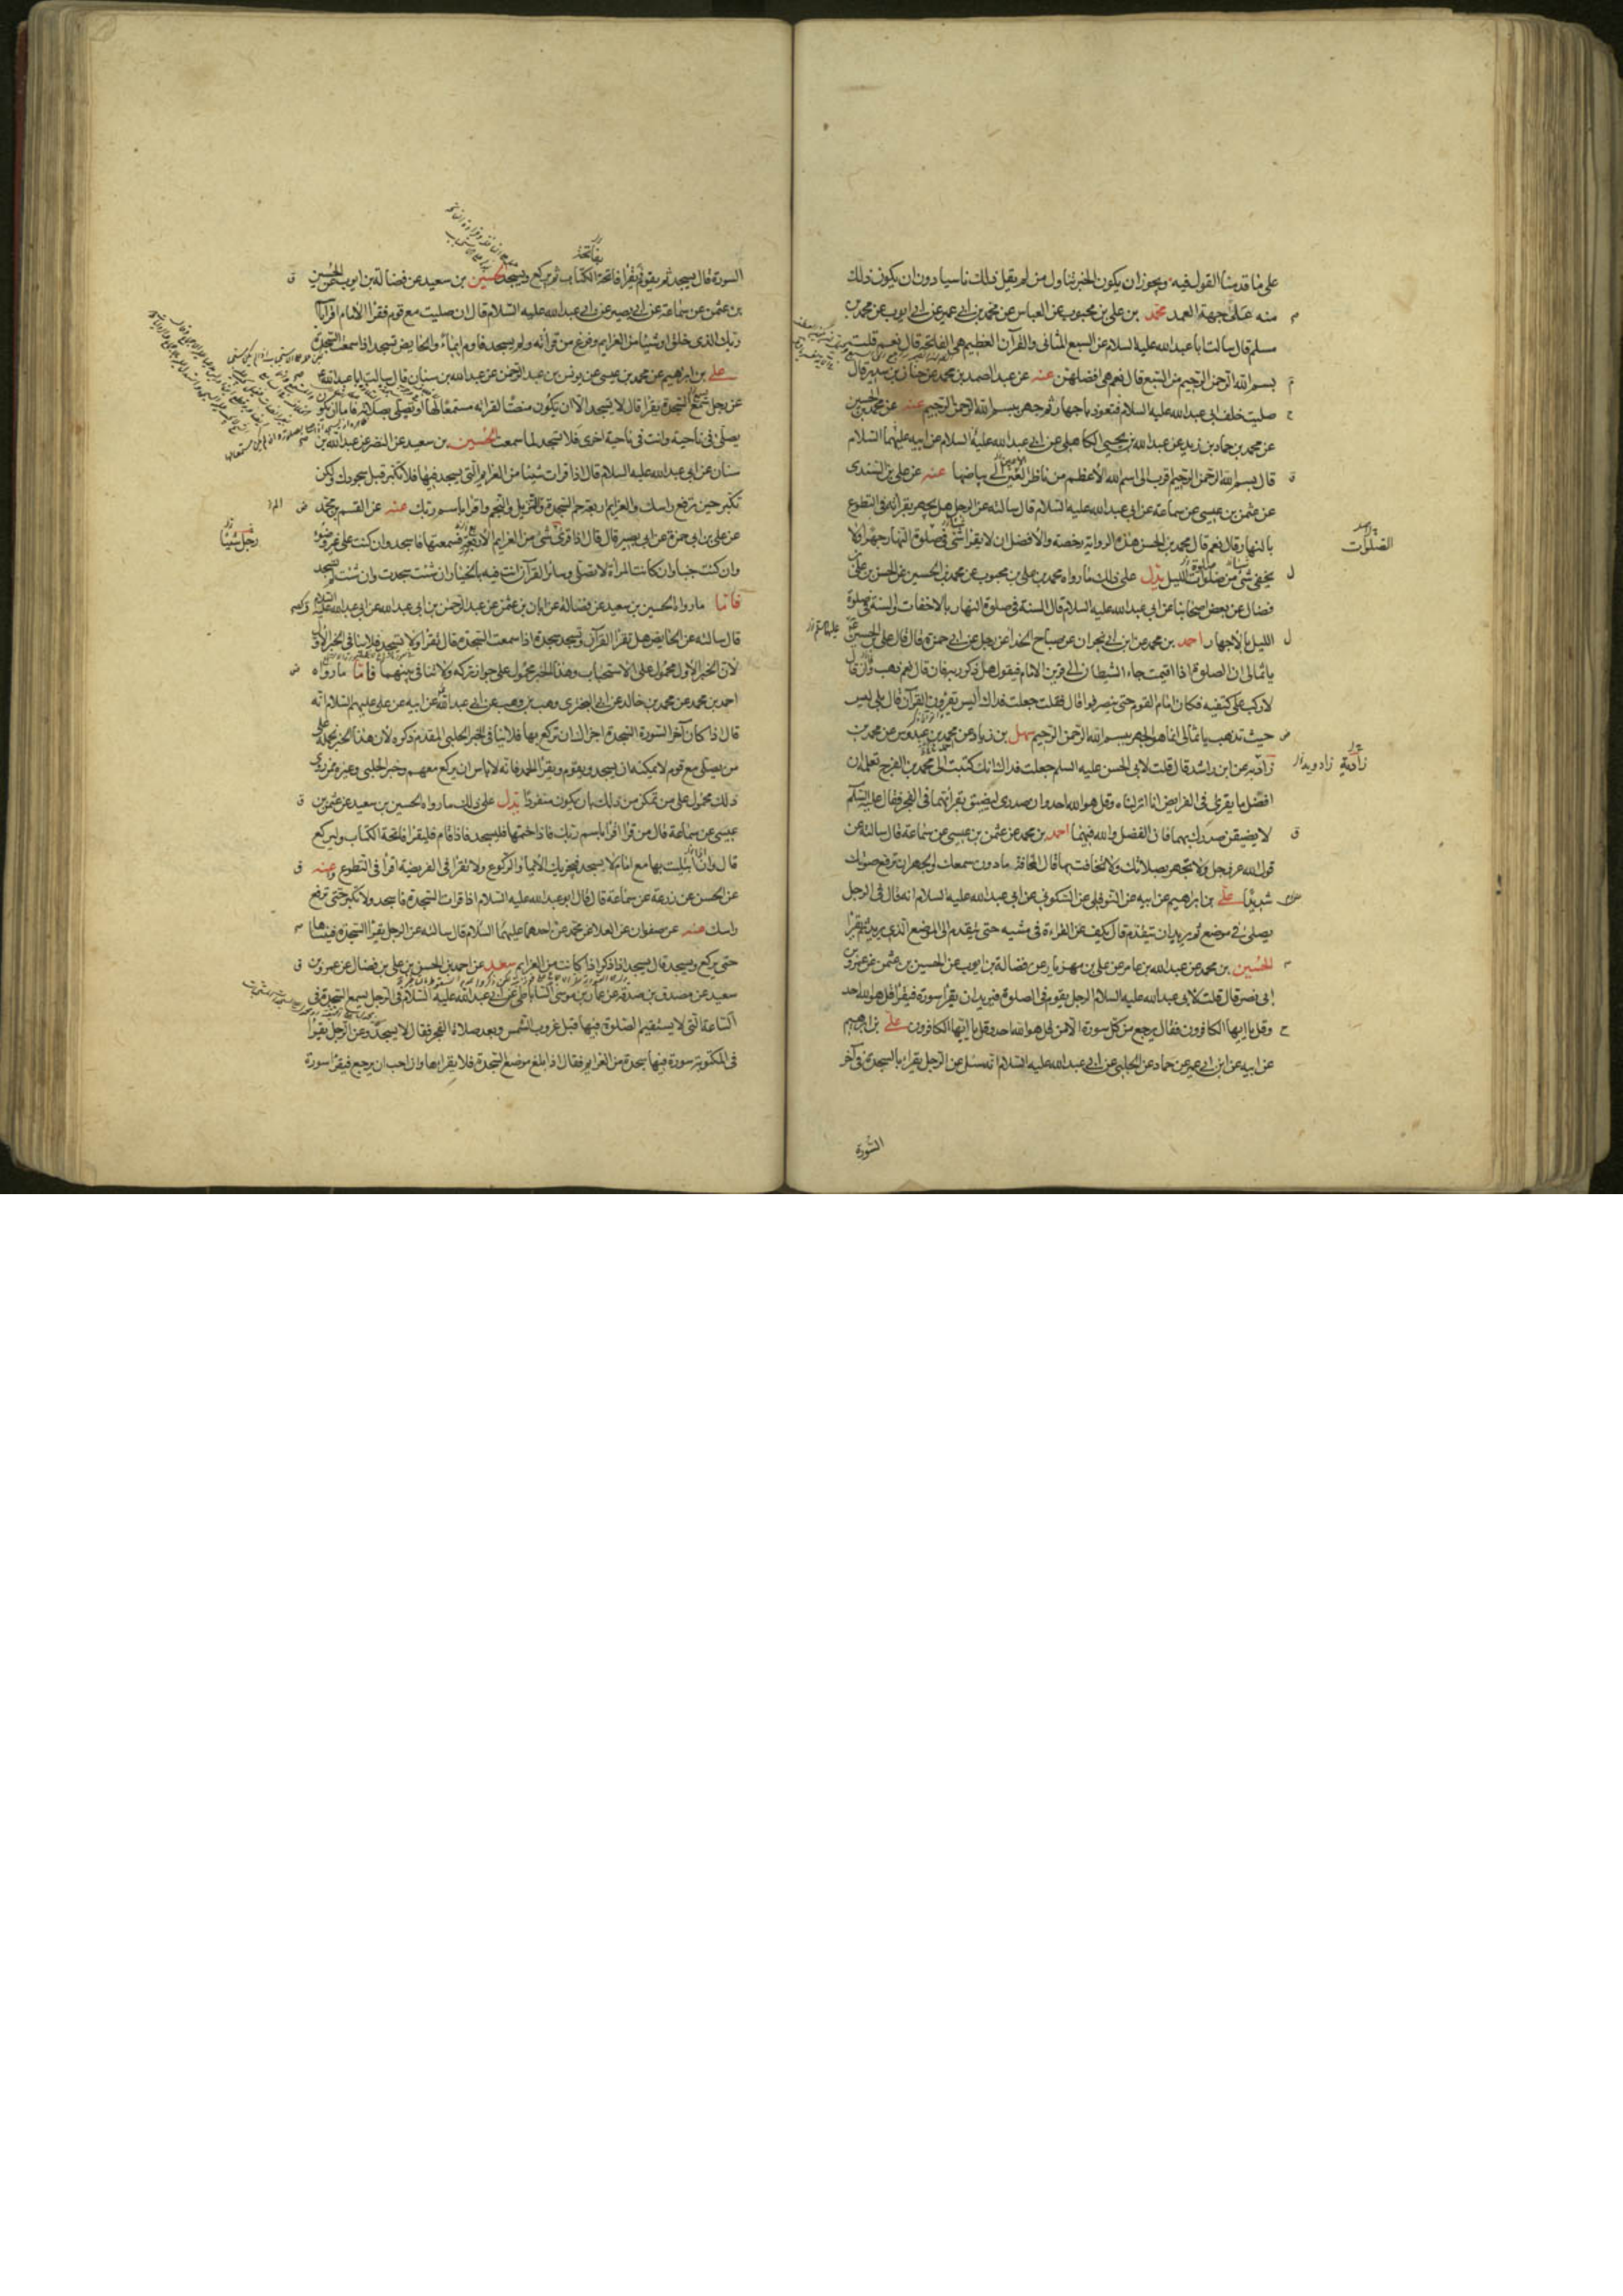 على ما قدمنا القول فيه ويجوز ان يكون الخبر تناول من لم يقل ذلك ناسيا دون ان يكون ذلك
منه على جهة العمد محمد بن على بن محبوب عن العباس عن محمد بن ابى عمير عن ابى ايوب عن محمد بن
مسلم قال سالت ابا عبد الله عليه السلام عن السبع المثانى والقرآن العظيم هى الفاتحة قال نعم قلت
بسم الله الرحمن الرحيم من السبع قال نعم هى افضلهن عنه عن عبد الصمد بن محمد عن حنان بن سدير قال
صليت خلف ابى عبد الله عليه السلام فتعوذ باجهار ثم جهر ببسم الله الرحمن الرحيم عنه عن محمد بن الحسين
عن محمد بن حماد بن زيد عن عبد الله بن يحيى الكاهلى عن ابى عبد الله عليه السلام عن ابيه عليهما السلام
قال بسم الله الرحمن الرحيم اقرب الى اسم الله الاعظم من ناظر العين الى بياضها عنه عن على بن السندى
عن عثمن بن عيسى عن سماعة عن ابى عبد الله عليه السلام قال سالته عن الرجل هل يجهر بقراءته فى التطوع
بالنهار قال نعم قال محمد بن الحسن هذه الرواية رخصة والافضل ان لا يقرأ شئ فى صلوة النهار جهرا ولا
الصلوات
يخفى شئ من صلوات الليل يدل على ذلك ما رواه محمد بن على بن محبوب عن محمد بن الحسين عن الحسن بن على بن
فضال عن بعض اصحابنا عن ابى عبد الله عليه السلام قال السنة فى صلوة النهار بالاخفات والسنة فى صلوة
الليل بالاجهار احمد بن محمد عن ابن ابى نجران عن صباح الحذاء عن رجل عن ابى حمزة قال قال على بن الحسين
يا ثمالى ان الصلوة اذا اقيمت جاء الشيطان الى قرين الامام فيقول هل ذكر ربه فان قال نعم ذهب وان قال
لا ركب على كتفيه فكان امام القوم حتى ينصرفوا قال فقلت جعلت فداك اليس يقرؤن القرآن قال بلى ليس
حيث تذهب يا ثمالى انما هو الجهر ببسم الله الرحمن الرحيم سهل بن زياد عن محمد بن عبدوس عن محمد بن
زادية عن ابن راشد قال قلت لابى الحسن عليه السلم جعلت فداك انك كتبت الى محمد بن الفرج تعلمه ان
زادية زادويه
افضل ما يقرئ فى الفرايض انا انزلناه وقل هو الله احد وان صدرى ليضيق بقرأتهما فى الفجر فقال عليه السلم
لا يضيقن صدرك بهما فان الفضل والله فيهما احمد بن محمد عن عثمن بن عيسى عن سماعة قال سالته عن
قول الله عز وجل ولا تجهر بصلاتك ولا تخافت بها قال المخافتة ما دون سمعك والجهر ان ترفع صوتك
شديدا على بن ابراهيم عن ابيه عن النوفلى عن السكونى عن ابى عبد الله عليه السلام انه قال فى الرجل
يصلى فى موضع ثم يريد ان يتقدم قال يكف عن القراءة فى مشيه حتى يتقدم الى الموضع الذى يريد ثم يقرأ
الحسين بن محمد عن عبد الله بن عامر عن على بن مهزيار عن فضالة بن ايوب عن الحسين بن عثمن عن عمرو بن
ابى نصر قال قلت لابى عبد الله عليه السلام الرجل يقوم فى الصلوة فيريد ان يقرأ سورة فيقرأ قل هو الله احد
وقل يا ايها الكافرون فقال يرجع من كل سورة الا من قل هو الله احد وقل يا ايها الكافرون على بن ابراهيم
عن ابيه عن ابن ابى عمير عن حماد عن الحلبى عن ابى عبد الله عليه السلام انه سئل عن الرجل يقرأ بالسجدة فى آخر
السورة
بفاتحة
السورة قال يسجد ثم يقوم فيقرأ فاتحة الكتاب ثم يركع ويسجد الحسين بن سعيد عن فضالة بن ايوب عن الحسين
بن عثمن عن سماعة عن ابى بصير عن ابى عبد الله عليه السلام قال ان صليت مع قوم فقرأ الامام اقرأ باسم
ربك الذى خلق او شيئا من العزايم وفرغ من قرأته ولم يسجد فاوم ايماء والحايض تسجد اذا سمعت السجدة
على بن ابرهيم عن محمد بن عيسى عن يونس بن عبد الرحمن عن عبد الله بن سنان قال سالت ابا عبد الله
عن رجل سمع السجدة يقرأ قال لا يسجد الا ان يكون منصتا لقراءته مستمعا لها او يصلى بصلاته فاما ان يكون
يصلى فى ناحية وانت فى ناحية اخرى فلا تسجد لما سمعت الحسين بن سعيد عن النضر عن عبد الله بن
سنان عن ابى عبد الله عليه السلام قال اذا قرات شيئا من العزايم التى يسجد فيها فلا تكبر قبل سجودك ولكن
تكبر حين ترفع راسك والعزايم اربعة حم السجدة والم تنزيل والنجم واقرأ باسم ربك عنه عن القسم بن محمد
عن على بن ابى حمزة عن ابى بصير قال قال اذا قرئ شئ من العزايم الاربع فسمعتها فاسجد وان كنت على غير وضوء
وان كنت جنبا وان كانت المرأة لا تصلى وساير القرآن انت فيه بالخيار ان شئت سجدت وان شئت لم تسجد
فاما ما رواه الحسين بن سعيد عن فضالة عن ابان بن عثمن عن عبد الرحمن بن ابى عبد الله عن ابى عبد الله عليه السلام
قال سالته عن الحايض هل تقرأ القرآن وتسجد سجدة اذا سمعت السجدة قال تقرأ ولا تسجد فلا ينافى الخبر الاول
لان الخبر الاول محمول على الاستحباب وهذا الخبر محمول على جواز تركه ولا تنافى بينهما فاما ما رواه
احمد بن محمد عن محمد بن خالد عن ابى البخترى وهب بن وهب عن ابى عبد الله عن ابيه عن على عليهم السلام انه
قال اذا كان آخر السورة السجدة اجزاك ان تركع بها فلا ينافى الخبر الحلبى المقدم ذكره لان هذا الخبر نحمله على
من يصلى مع قوم لا يمكنه ان يسجد ويقوم ويقرأ الحمد فانه لا باس ان يركع معهم وخبر الحلبى وغيره مما روى
ذلك محمول على من تمكن من ذلك بان يكون منفردا يدل على ذلك ما رواه الحسين بن سعيد عن عثمن بن
عيسى عن سماعة قال من قرأ اقرأ باسم ربك فاذا ختمها فليسجد فاذا قام فليقرأ فاتحة الكتاب وليركع
قال وان ابتليت بها مع امام لا يسجد فيجزيك الايماء والركوع ولا تقرأ فى الفريضة اقرأ فى التطوع وعنه
عن الحسن عن زرعة عن سماعة قال قال ابو عبد الله عليه السلام اذا قرات السجدة فاسجد ولا تكبر حتى ترفع
راسك عنه عن صفوان عن العلا عن محمد عن احدهما عليهما السلام قال سالته عن الرجل يقرأ السجدة فينساها
حتى يركع ويسجد قال يسجد اذا ذكر اذا كانت من العزايم سعد عن احمد بن الحسن بن على بن فضال عن عمرو بن
سعيد عن مصدق بن صدقة عن عمار بن موسى الساباطى عن ابى عبد الله عليه السلام فى الرجل يسمع السجدة فى
الساعة التى لا يستقيم الصلوة فيها قبل غروب الشمس وبعد صلاة الفجر فقال لا يسجد وعن الرجل يقرأ
فى المكتوبة سورة فيها سجدة من العزايم فقال اذا بلغ موضع السجدة فلا يقرأها وان احب ان يرجع فيقرأ سورة